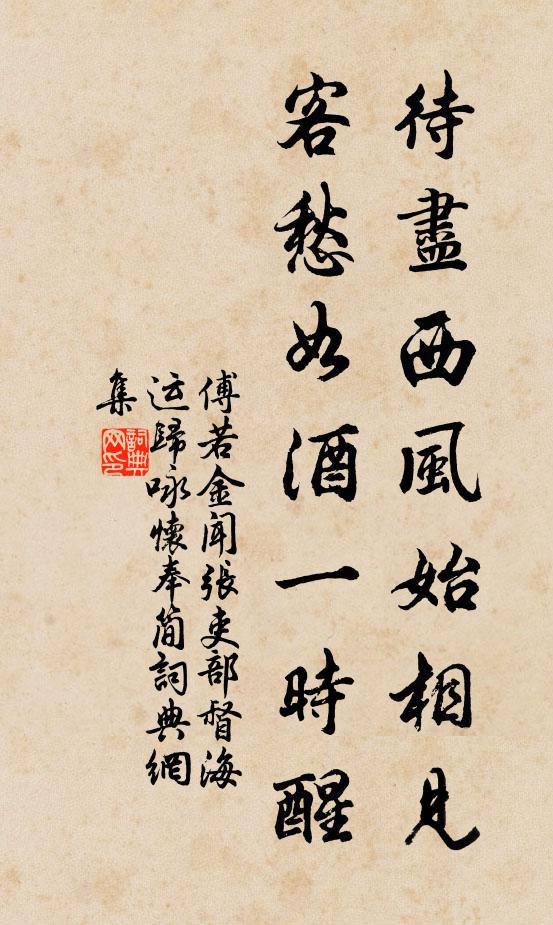 待盡西風始相見
客愁如酒一時醒
傅若金聞張吏部督海
运歸咏懷奉简詞典網
集
詞典
网印